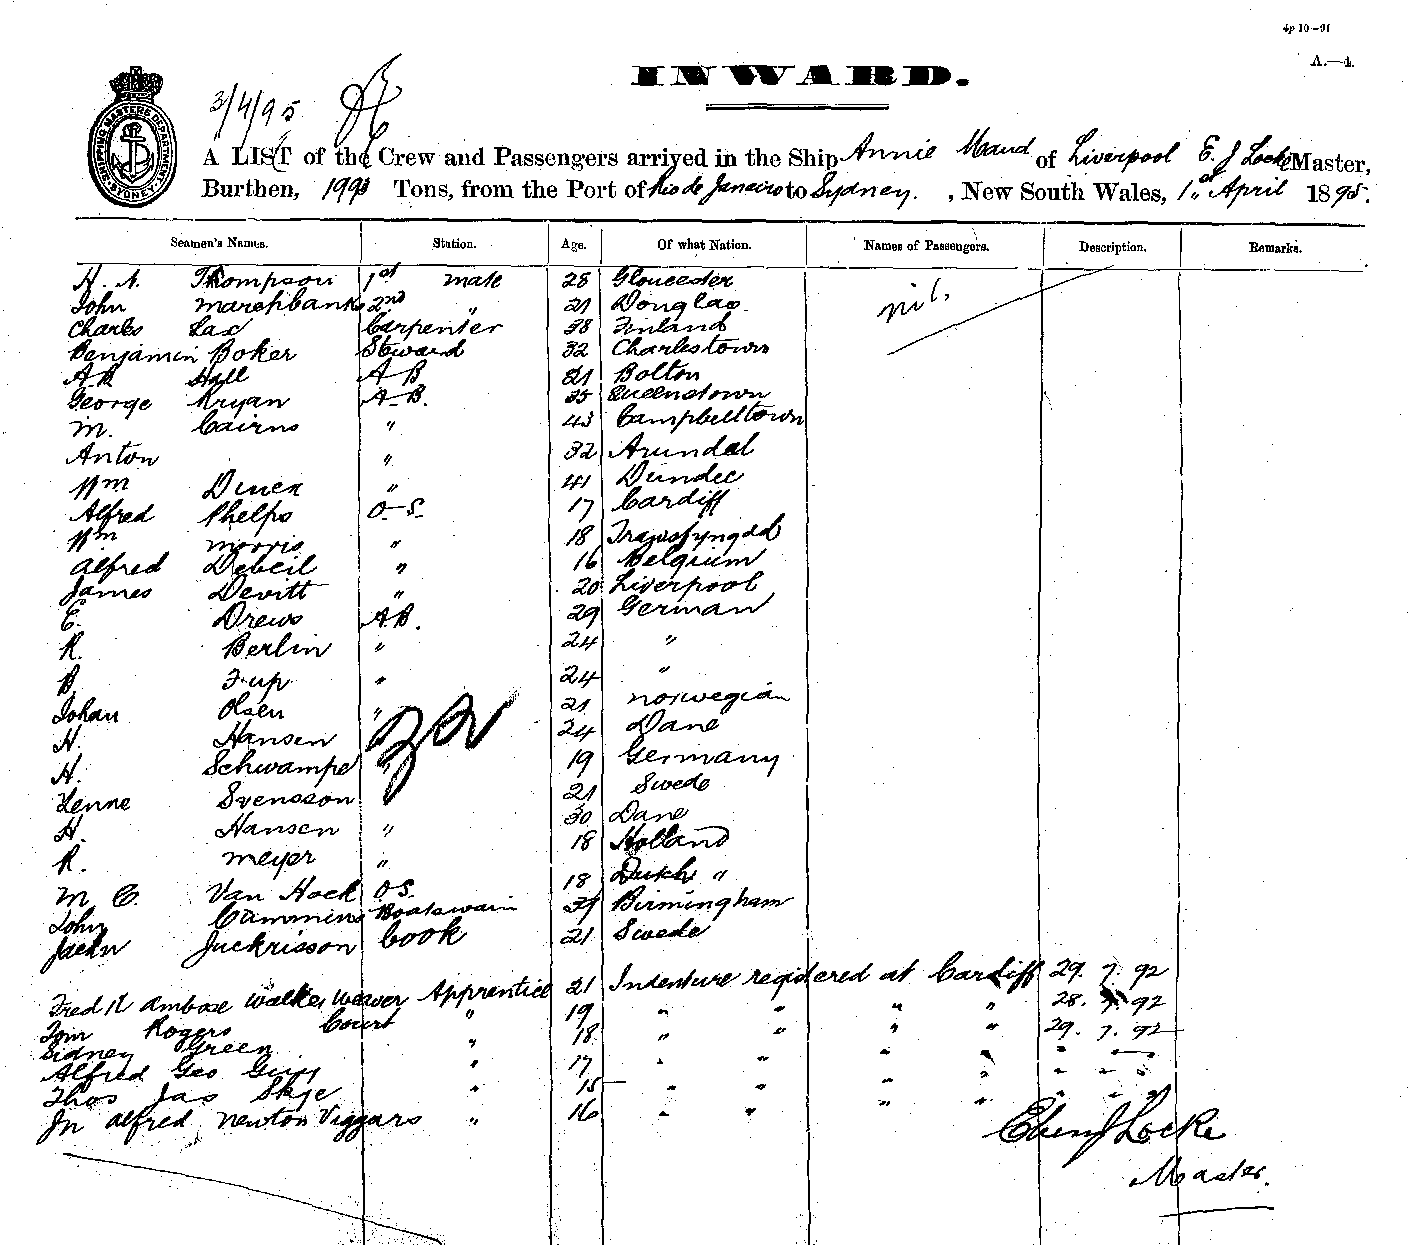 4p 10-91
A.—4.
INWARD.
3/4/95
SHIPPING MASTERS DEPARTMENT SYDNEY
A LIST of the Crew and Passengers arrived in the Ship Annie Maud of Liverpool E. J Locke Master,
Burthen, 199 Tons, from the Port of Rio de Janeiro to Sydney. , New South Wales, 1st April 1895.
Seamen's Names. Station. Age. Of what Nation. Names of Passengers. Description. Remarks.
H. A. Thompson 1st mate 28 Gloucester nil.
John Marshbanks 2nd " 21 Douglas
Charles Lax Carpenter 38 Finland
Benjamin Boker Steward 32 Charlestown
Hall A B 21 Bolton
George Kryan A-B. 35 Queenstown
M. Cairns " 43 Campbelltown
Anton " 32 Arundal
Wm " 41 Dundee
Alfred Phelps O-S. 17 Cardiff
Wm Morris " 18
Alfred Debeil " 16 Belgium
James Devitt " 20 Liverpool
E. Drews A.B. 29 German
R. Berlin " 24 "
B " 24 "
Johan Olsen " 21 Norwegian
H. Hansen 24 Dane
H. Schwampe " 19 Germany
Svensson 21 Swede
H. Hansen " 30 Dane
R. Meyer " 18 Holland
M C. Van Hoek O S. 18 Dutch "
John Cummins Boatswain 39 Birmingham
Juckrisson Cook 21 Swede
Fred K Ambose Walker Weaver Apprentice 21 Indenture registered at Cardiff 29. 7. 92
Tom Rogers Court " 19 " " " " 28. 7. 92
Sidney Green " 18 " " " " 29. 7. 92
Alfred Geo Guy " 17 " " " " " " "
Thos Jas Skye " 15 " " " " " " "
Jn Alfred Newton Viggars " 16 " " " "
Eben J Locke
Master.